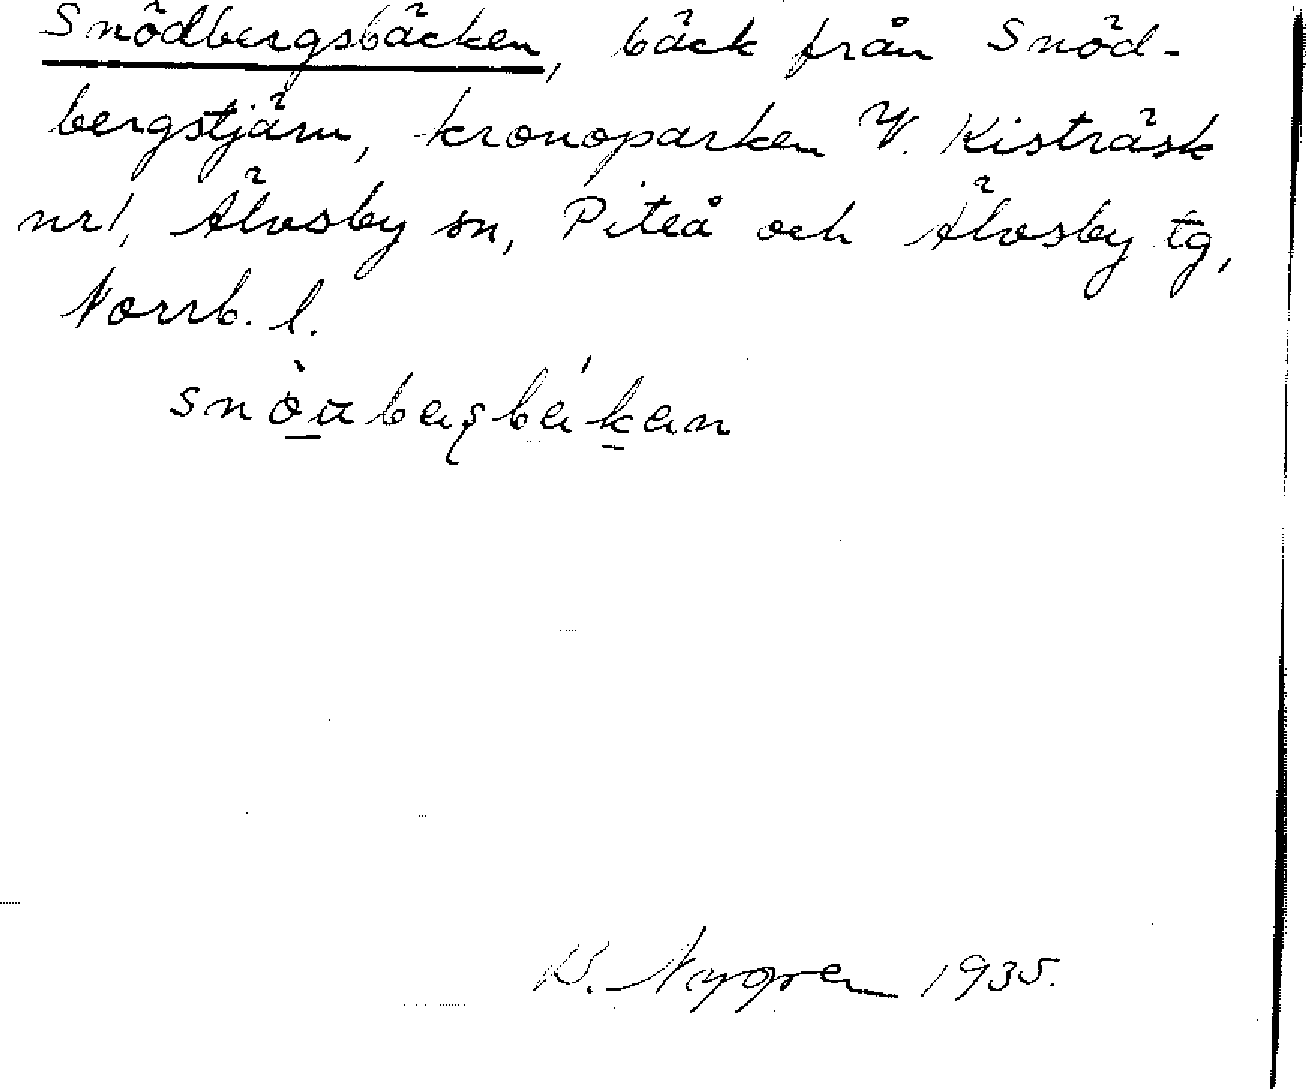 Snödbergsbäcken, bäck från Snöd-
bergstjärn, kronoparken V. Kisträsk
nr 1, Älvsby sn, Piteå och Älvsby tg,
Norrb. l.
Nygren 1935.